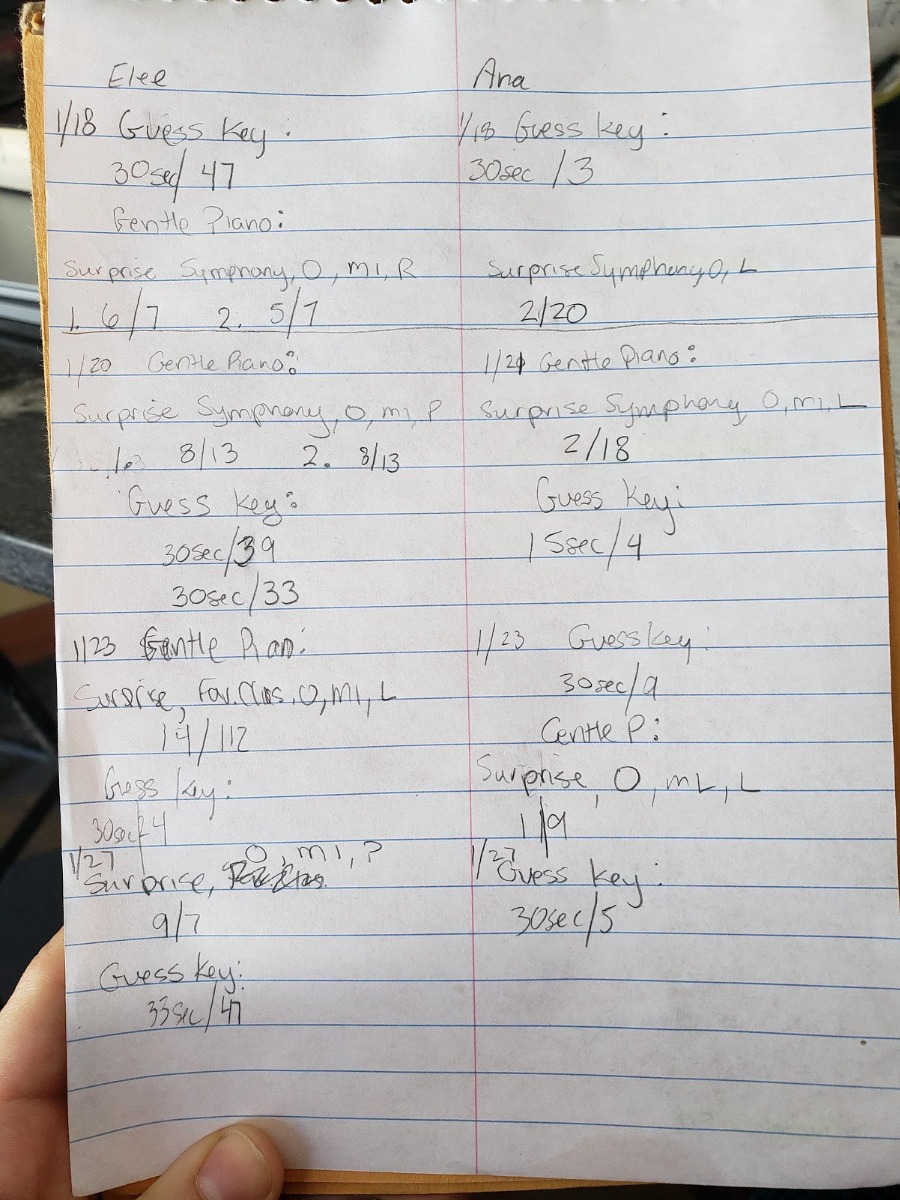 Elee
1/18 Guess Key:
30sec/47
Gentle Piano:
Surprise Symphony, O, m1, R
1. 6/7 2. 5/7
1/20 Gentle Piano:
Surprise Symphony, O, m1, P
1. 8/13 2. 8/13
Guess Key:
30sec/39
30sec/33
1/23 Gentle Pian:
Surprise, Fav. Clas. O, m1, L
14/112
Gess Key:
30sec/24
1/27 O, m1, ?
Surprise,
9/7
Guess Key:
33sec/47
Ana
1/18 Guess key:
30sec /3
Surprise Symphony O, L
2/20
1/21 Gentle Piano:
Surprise Symphony O, m1, L
2/18
Guess Key:
15sec/4
1/23 Guess key:
30sec/9
Gentle P:
Surprise, O, mL, L
1/9
1/27
Guess key:
30sec/5